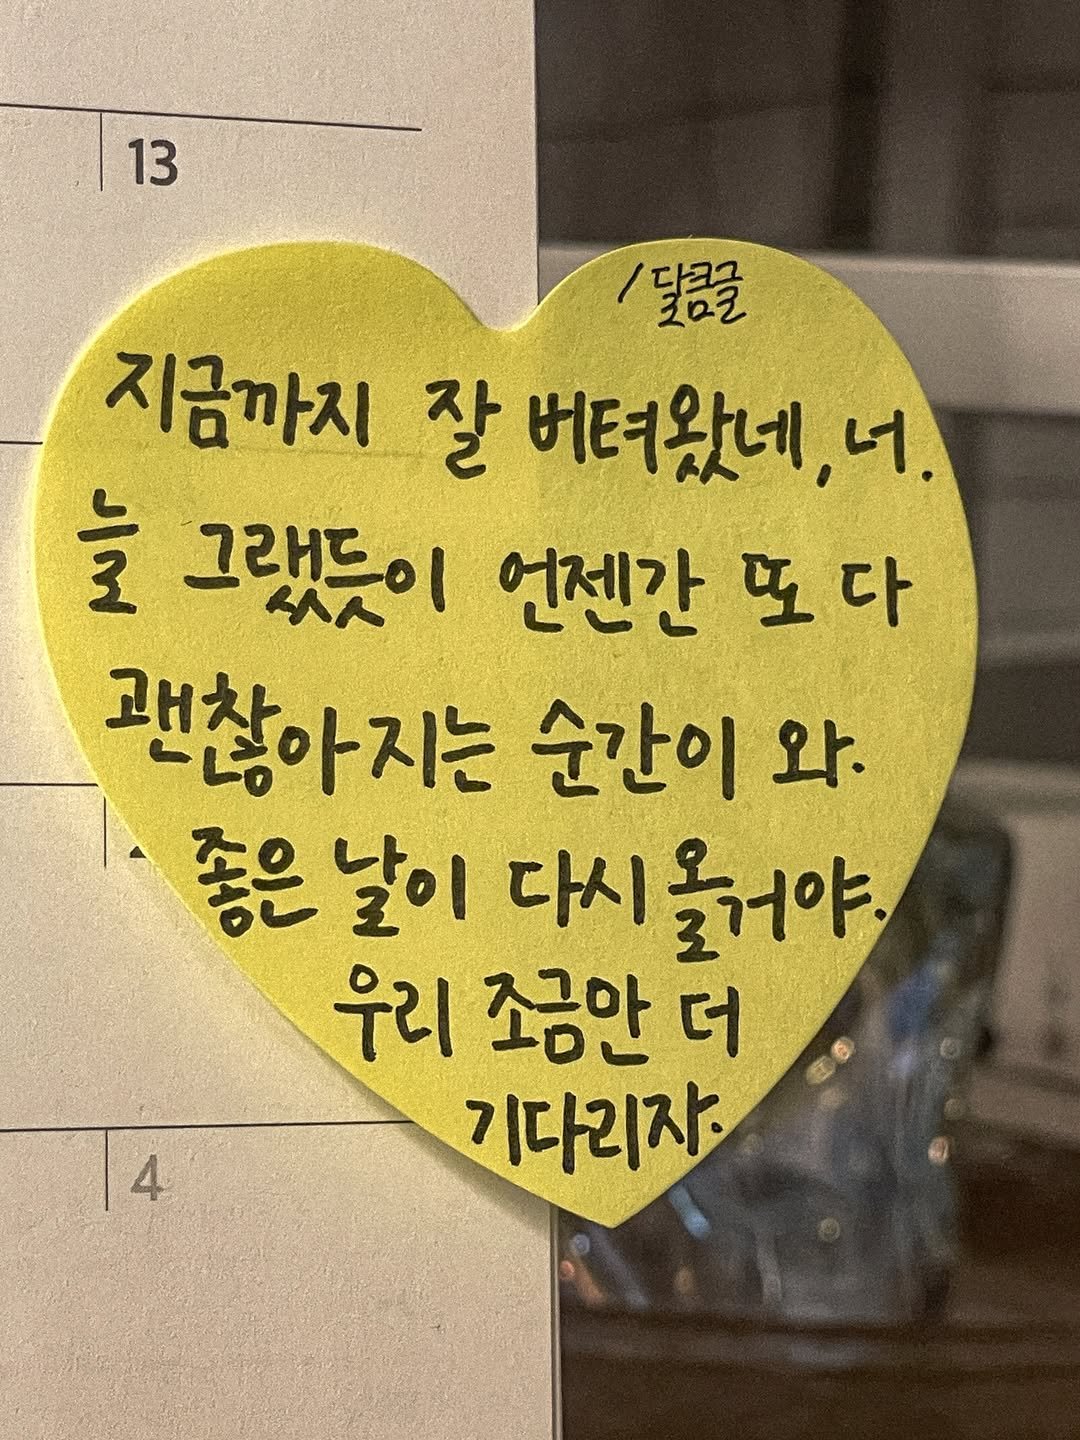 13
/달콤글
지금까지 잘 버텨왔네, 너.
늘 그랬듯이 언젠간 또 다
괜찮아지는 순간이 와.
좋은 날이 다시 올거야.
우리 조금만 더
기다리자.
4